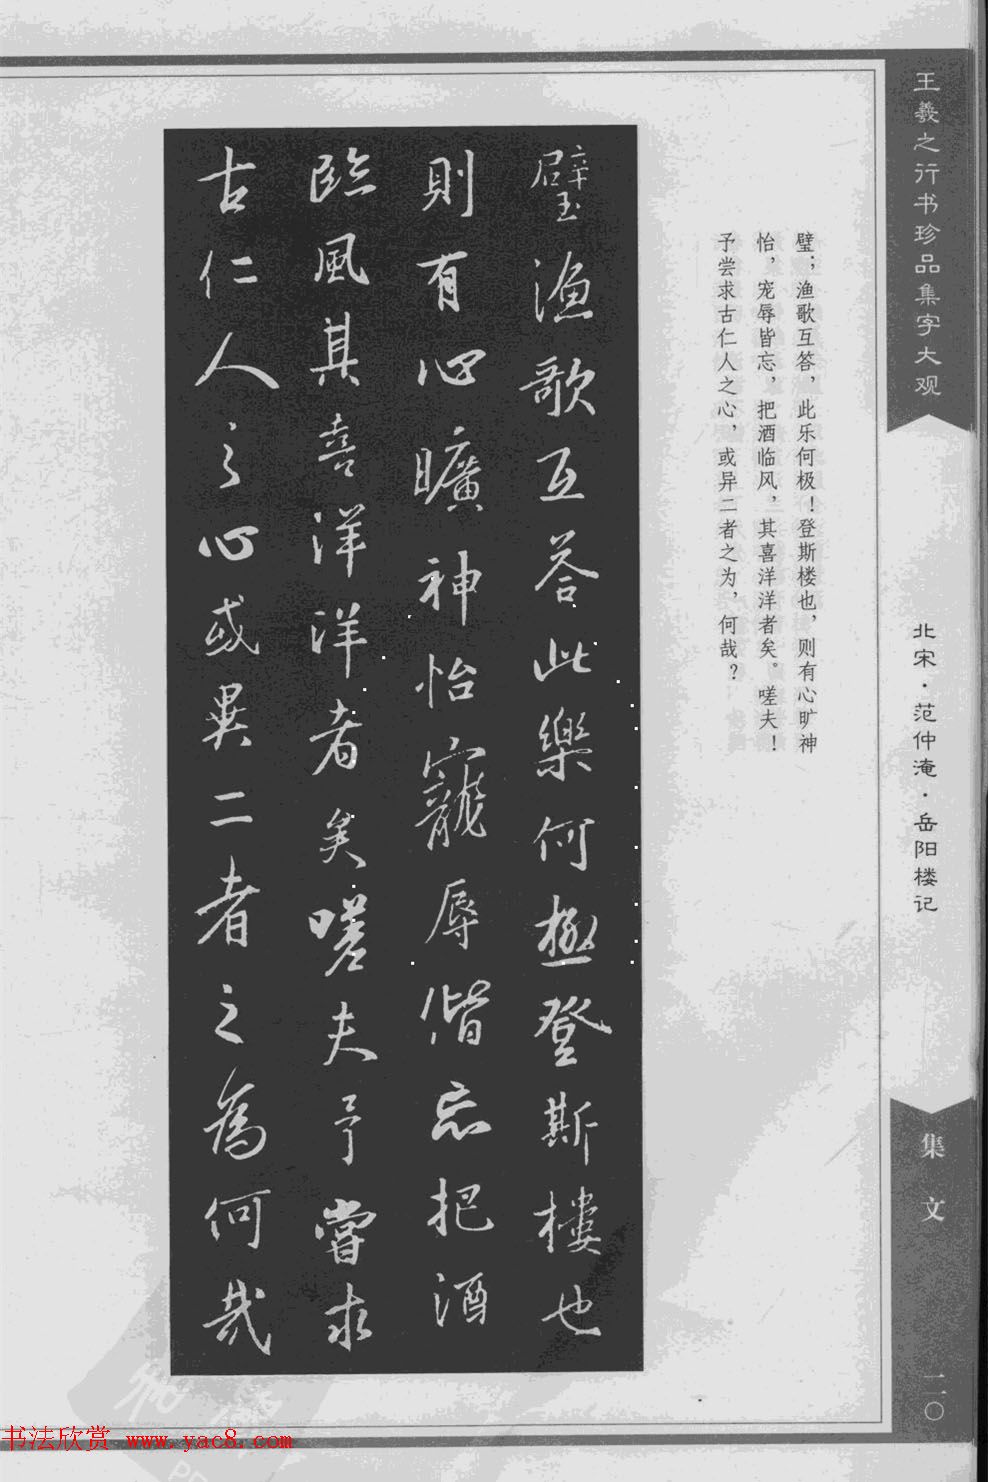 王羲之行书珍品集字大观
北宋·范仲淹·岳阳楼记
集文
二〇
璧；渔歌互答，此乐何极！登斯楼也，则有心旷神
怡，宠辱皆忘，把酒临风，其喜洋洋者矣。嗟夫！
予尝求古仁人之心，或异二者之为，何哉？
璧漁歌互答此樂何極登斯樓也
則有心曠神怡寵辱偕忘把酒
臨風其喜洋洋者矣嗟夫予嘗求
古仁人之心或異二者之為何哉
书法欣赏 www.yac8.com